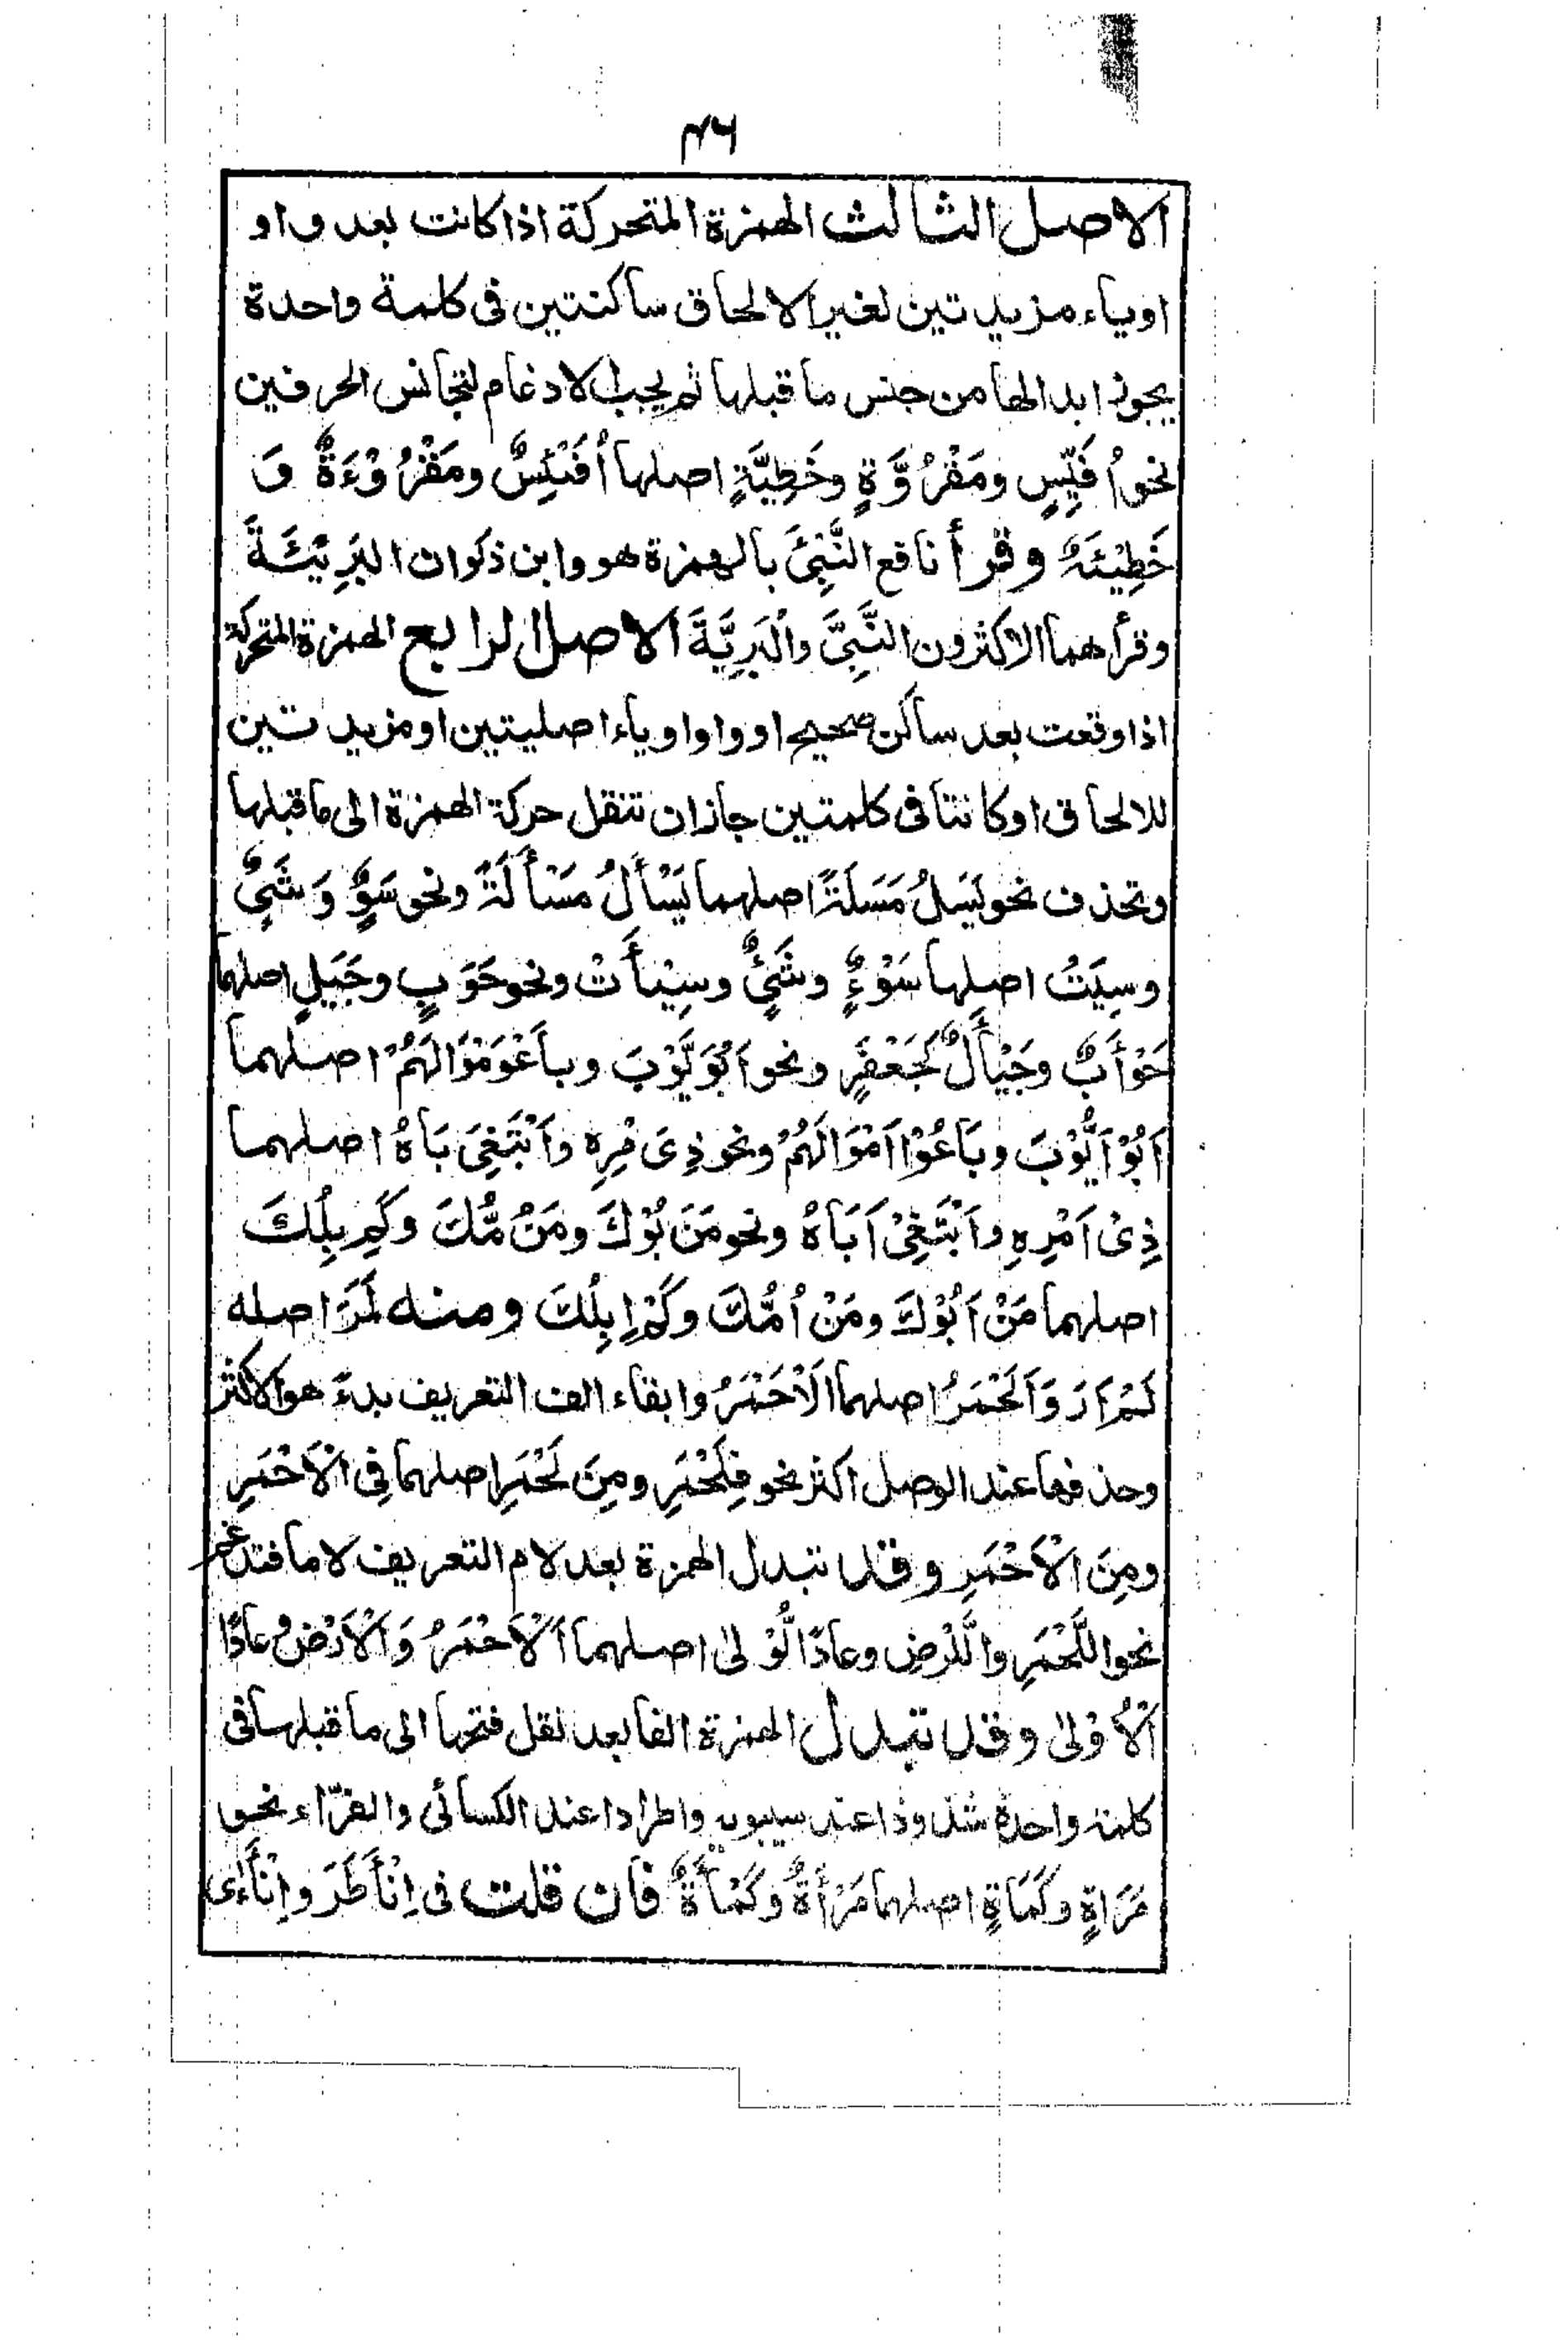 ٤٦
الاصل الثالث الهمزة المتحركة اذا كانت بعد واو
او ياء مزيد تين لغير الالحاق ساكنتين فى كلمة واحدة
يجوز ابدالها من جنس ما قبلها ثم يجب الادغام لتجانس الحرفين
نحو اُفَيِّسٍ ومَقْرُوَّةٍ وخَطِيَّةٍ اصلها أُفَيْئِسٌ ومَقْرُوْءَةٌ وَ
خَطِيْئَةٌ وقرأ نافع النَّبِیْٔ بالهمزة هو وابن ذكوان البَرِيْئَةَ
وقرأهما الاكثرون النَّبِیَّ والْبَرِيَّةَ الاصل الرابع الهمزة المتحركة
اذا وقعت بعد ساكن صحيح او واو او ياء اصليتين او مزيد تين
للالحاق او كانتا فى كلمتين جاز ان تنقل حركة الهمزة الى ما قبلها
وتحذف نحو يَسَلُ مَسَلَةً اصلهما يَسْأَلُ مَسْأَلَةً ونحو سَوٍ وَشَیٍ
وسِيَتْ اصلها سَوْءٍ وشَیْءٍ وسِيْأَتْ ونحو حَوَبٍ وجَيَلٍ اصلهما
حَوْأَبٌ وجَيْأَلٌ كَجَعْفَرٍ ونحو اَبُوَيُّوْبَ وباعُوَمْوَالَهُمْ اصلهما
اَبُوْ اَيُّوْبَ وبَاعُوْا اَمْوَالَهُمْ ونحو ذِیَ مْرِهِ واَبْتَغِیَ بَاهُ اصلهما
ذِیْ اَمْرِهِ واَبْتَغِیْ اَبَاهُ ونحو مَنَ بُوْكَ ومَنُ مُّكَ وكَمِ بِلُكَ
اصلهما مَنْ اَبُوْكَ ومَنْ اُمُّكَ وكَمْ اِبِلُكَ ومنه لَمَرَ اصله
لَمْ اَرَ وَاَلَحْمَرُ اصلهما الْاَحْمَرُ وابقاء الف التعريف بدءً هو الاكثر
وحذفها عند الوصل اكثر نحو فِلَحْمَرِ ومِنَ لَحْمَرِ اصلهما فِی الْاَحْمَرِ
ومِنَ الْاَحْمَرِ وقد تبدل الهمزة بعد لام التعريف لاما فتدغم
نحو اللَّحْمَرِ واللَّرْضِ وعادًا لُّوْلٰى اصلهما اَلْاَحْمَرُ وَالْاَرْضُ وعادًا
اَلْأُوْلٰى وقد تبدل الهمزة الفا بعد نقل فتحها الى ما قبلها فى
كلمة واحدة شذوذا عند سيبويه واطرادا عند الكسائى والفرّاء نحو
مَرَاةٍ وكَمَاةٍ اصلهما مَرْأَةٌ وكَمْأَةٌ فان قلت فى اِنْأَطَرَ واِنْأَءٰى